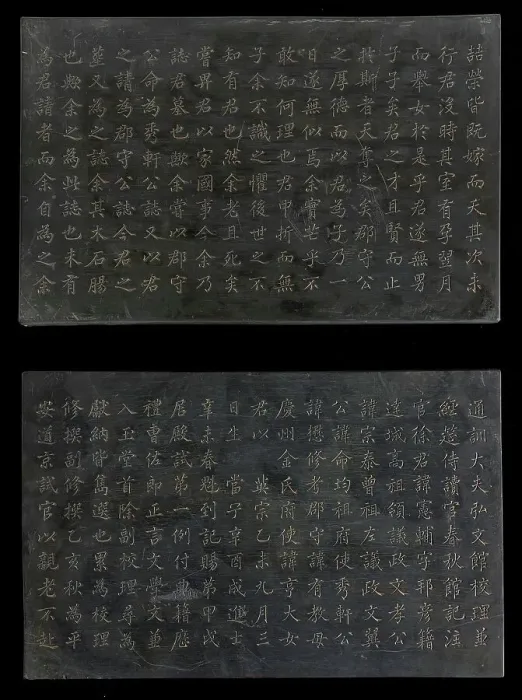 喆榮皆既嫁而夭其次未
行君沒時其室有孕望月
而舉女於是乎君遂無男
子子矣君之才且賢而止
於斯者天奪之矣郡守公
之厚德而以君為子乃一
日遂無似焉余實茫乎不
敢知何理也君甲折而無
子余不識之懼後世之不
知有君也然余老且死矣
嘗畀君以家國事今余乃
誌君墓也歟余嘗以郡守
公命為秀軒公誌又以君
之請為郡守公誌今君之
墓又為之誌余其木石腸
也歟余之為此誌也未有
為君請者而余自為之余
通訓大夫弘文館校理並
經筵侍讀官春秋館記注
官徐君諱憲輔字邦彥籍
達城高祖領議政文孝公
諱宗泰曾祖左議政文翼
公諱命均祖府使秀軒公
諱懋修考郡守諱有教母
慶州金氏府使諱亨大女
君以 英宗乙未九月三
日生 當子辛酉成進士
辛未春魁到記賜第甲戌
居殿試第一例付典籍歷
禮曹佐郎正言文學文並
入玉堂首除副校理尋為
獻納皆雋選也累為校理
修撰副修撰乙亥秋為平
安道京試官以親老不赴